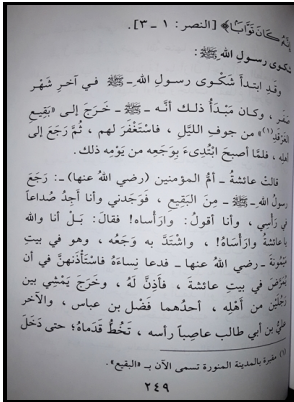 إِنَّهُ كَانَ تَوَّابًا﴾ [النصر: ١ - ٣].
شكوى رسولِ اللهِ ﷺ:
وقَدِ ابتدأَ شَكْوى رسولِ اللهِ - ﷺ - في آخرِ شَهْرِ
صَفَر، وكـان مَبْـدَأُ ذلـك أنَّـه - ﷺ - خَـرَجَ إلى «بَقِيعِ
الغَرْقَدِ(١)» من جوفِ الليْلِ، فاسْتَغْفَرَ لهم، ثُمَّ رَجَعَ إلى
أهلِه، فلمَّا أصبحَ ابْتُدِىءَ بِوَجَعِهِ من يَوْمِه ذلك.
قالتْ عائشةُ - أمُّ المؤمنين (رضي اللهُ عنها) -: رَجَعَ
رسولُ اللهِ - ﷺ - مِنَ البَقِيعِ، فَوَجَدَني وأنا أجِدُ صُداعاً
في رَأسِي، وأنا أقولُ: وارَأساه! فقالَ: بَلْ أنا واللهِ
يا عائشةُ وارَأسَاهُ!، واشْتَدَّ به وَجَعُه، وهو في بيتِ
مَيْمُونَةَ - رضي اللهُ عنها - فدعا نِساءَهُ فاسْتَأذَنهنَّ في أن
يُمَرَّضَ في بيتِ عائشة، فأذِنَّ لَهُ، وخَرَجَ يَمْشِي بين
رَجُلَيْنِ من أَهْلِه، أحدُهما فَضْل بن عباس، والآخر
عليُّ بن أبي طالب عاصِباً رأسه، تَخُطُّ قدَماهُ؛ حتى دَخَلَ
(١) مقبرة بالمدينة المنورة تسمى الآن بـ «البقيع».
٢٤٩